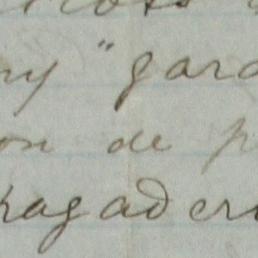 ny " gara
on de p
pagader